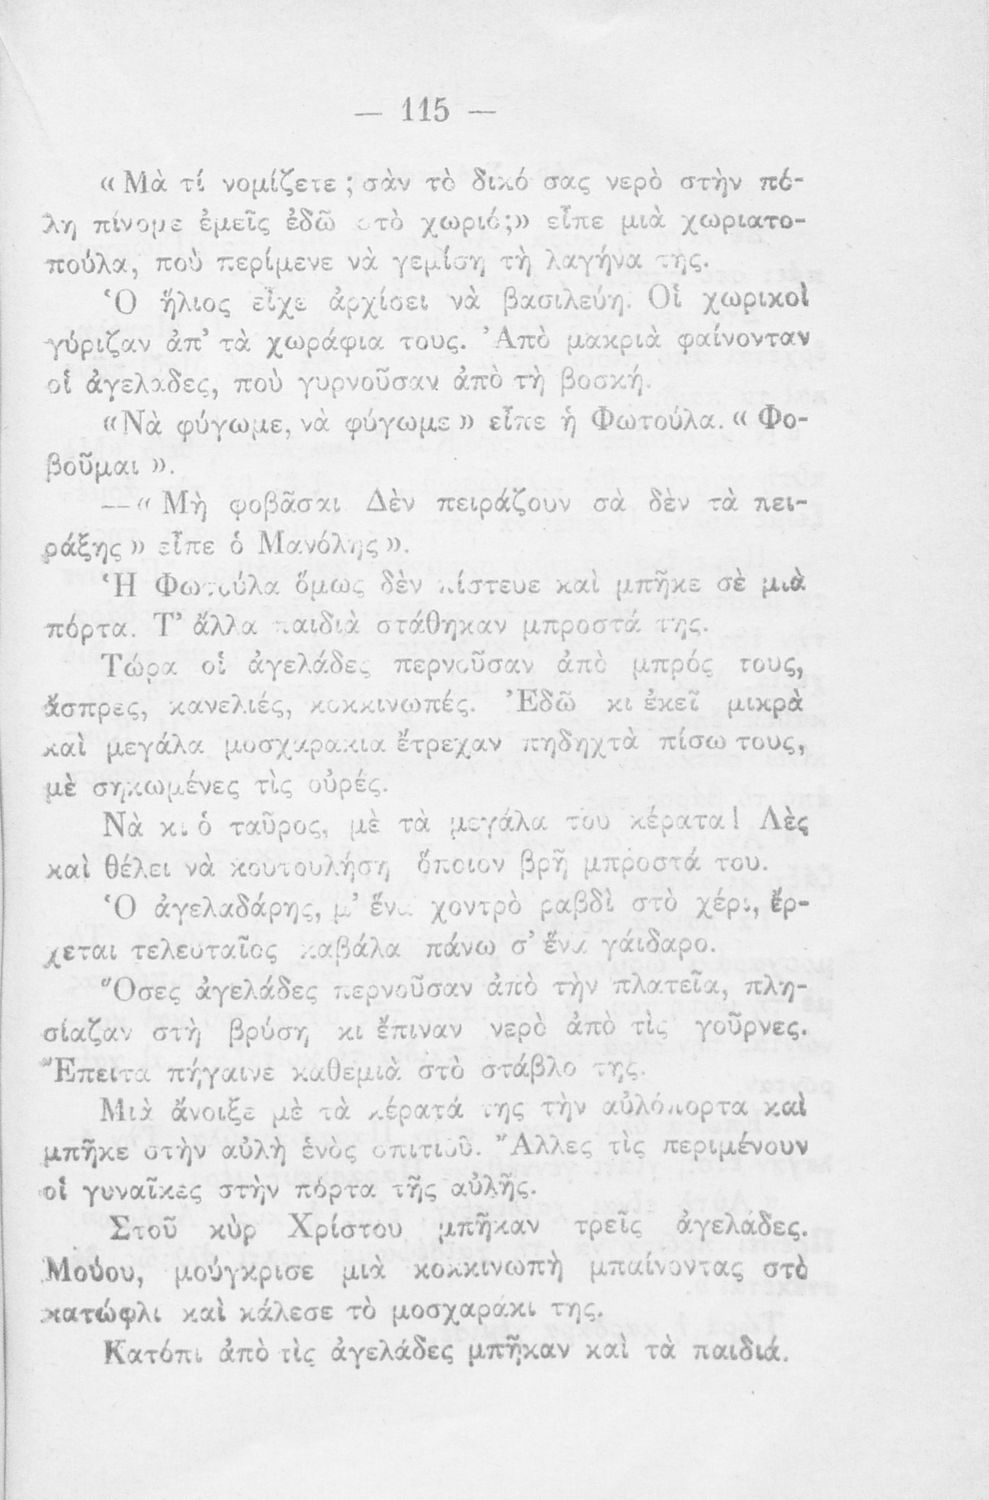 — 115 —
«Μὰ τί νομίζετε ; σὰν τὸ δικό σας νερὸ στὴν πό-
λη πίνομε ἐμεῖς ἐδῶ στὸ χωριό;» εἶπε μιὰ χωριατο-
πούλα, ποὺ περίμενε νὰ γεμίσῃ τὴ λαγήνα της.
Ὁ ἥλιος εἶχε ἀρχίσει νὰ βασιλεύῃ. Οἱ χωρικοὶ
γύριζαν ἀπ’ τὰ χωράφια τους. Ἀπὸ μακριὰ φαίνονταν
οἱ ἀγελαδες, ποὺ γυρνοῦσαν ἀπὸ τὴ βοσκή.
«Νὰ φύγωμε, νὰ φύγωμε» εἶπε ἡ Φωτούλα. «Φο-
βοῦμαι».
—«Μὴ φοβᾶσαι Δὲν πειράζουν σὰ δὲν τὰ πει-
ράξης» εἶπε ὁ Μανόλης».
Ἡ Φωτούλα ὅμως δὲν πίστευε καὶ μπῆκε σὲ μιὰ
πόρτα. Τ’ ἄλλα παιδιὰ στάθηκαν μπροστά της.
Τώρα οἱ ἀγελάδες περνοῦσαν ἀπὸ μπρός τους,
ἄσπρες, κανελιές, κοκκινωπές. Ἐδῶ κι ἐκεῖ μικρὰ
καὶ μεγάλα μοσχαρακια ἔτρεχαν πηδηχτὰ πίσω τους,
μὲ σηκωμένες τὶς οὐρές.
Νὰ κι ὁ ταῦρος, μὲ τὰ μεγάλα του κέρατα! Λὲς
καὶ θέλει νὰ κουτουλήσῃ ὅποιον βρῇ μπροστά του.
Ὁ ἀγελαδάρης, μ’ ἕνα χοντρὸ ραβδὶ στὸ χέρι, ἔρ-
χεται τελευταῖος καβάλα πάνω σ’ ἕνα γάιδαρο.
Ὅσες ἀγελάδες περνοῦσαν ἀπὸ τὴν πλατεῖα, πλη-
σίαζαν στὴ βρύση κι ἔπιναν νερὸ ἀπὸ τὶς γοῦρνες.
Ἔπειτα πήγαινε καθεμιὰ στὸ στάβλο της.
Μιὰ ἄνοιξε μὲ τὰ κέρατά της τὴν αὐλόπορτα καὶ
μπῆκε στὴν αὐλὴ ἑνὸς σπιτιοῦ. Ἄλλες τὶς περιμένουν
οἱ γυναῖκες στὴν πόρτα τῆς αὐλῆς.
Στοῦ κὺρ Χρίστου μπῆκαν τρεῖς ἀγελάδες.
Μούου, μούγκρισε μιὰ κοκκινωπὴ μπαίνοντας στὸ
κατώφλι καὶ κάλεσε τὸ μοσχαράκι της.
Κατόπι ἀπὸ τὶς ἀγελάδες μπῆκαν καὶ τὰ παιδιά.